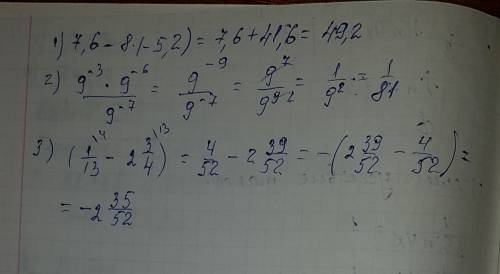 1) 7,6 - 8·(-5,2) = 7,6 + 41,6 = 49,2
2) 9⁻³ · 9⁻⁶ / 9⁻⁷ = 9⁻⁹ / 9⁻⁷ = 9⁷ / 9⁹ = 1 / 9² = 1 / 81
3) (1/13 \4 - 2 3/4 \13) = 4/52 - 2 39/52 = -(2 39/52 - 4/52) =
= -2 35/52